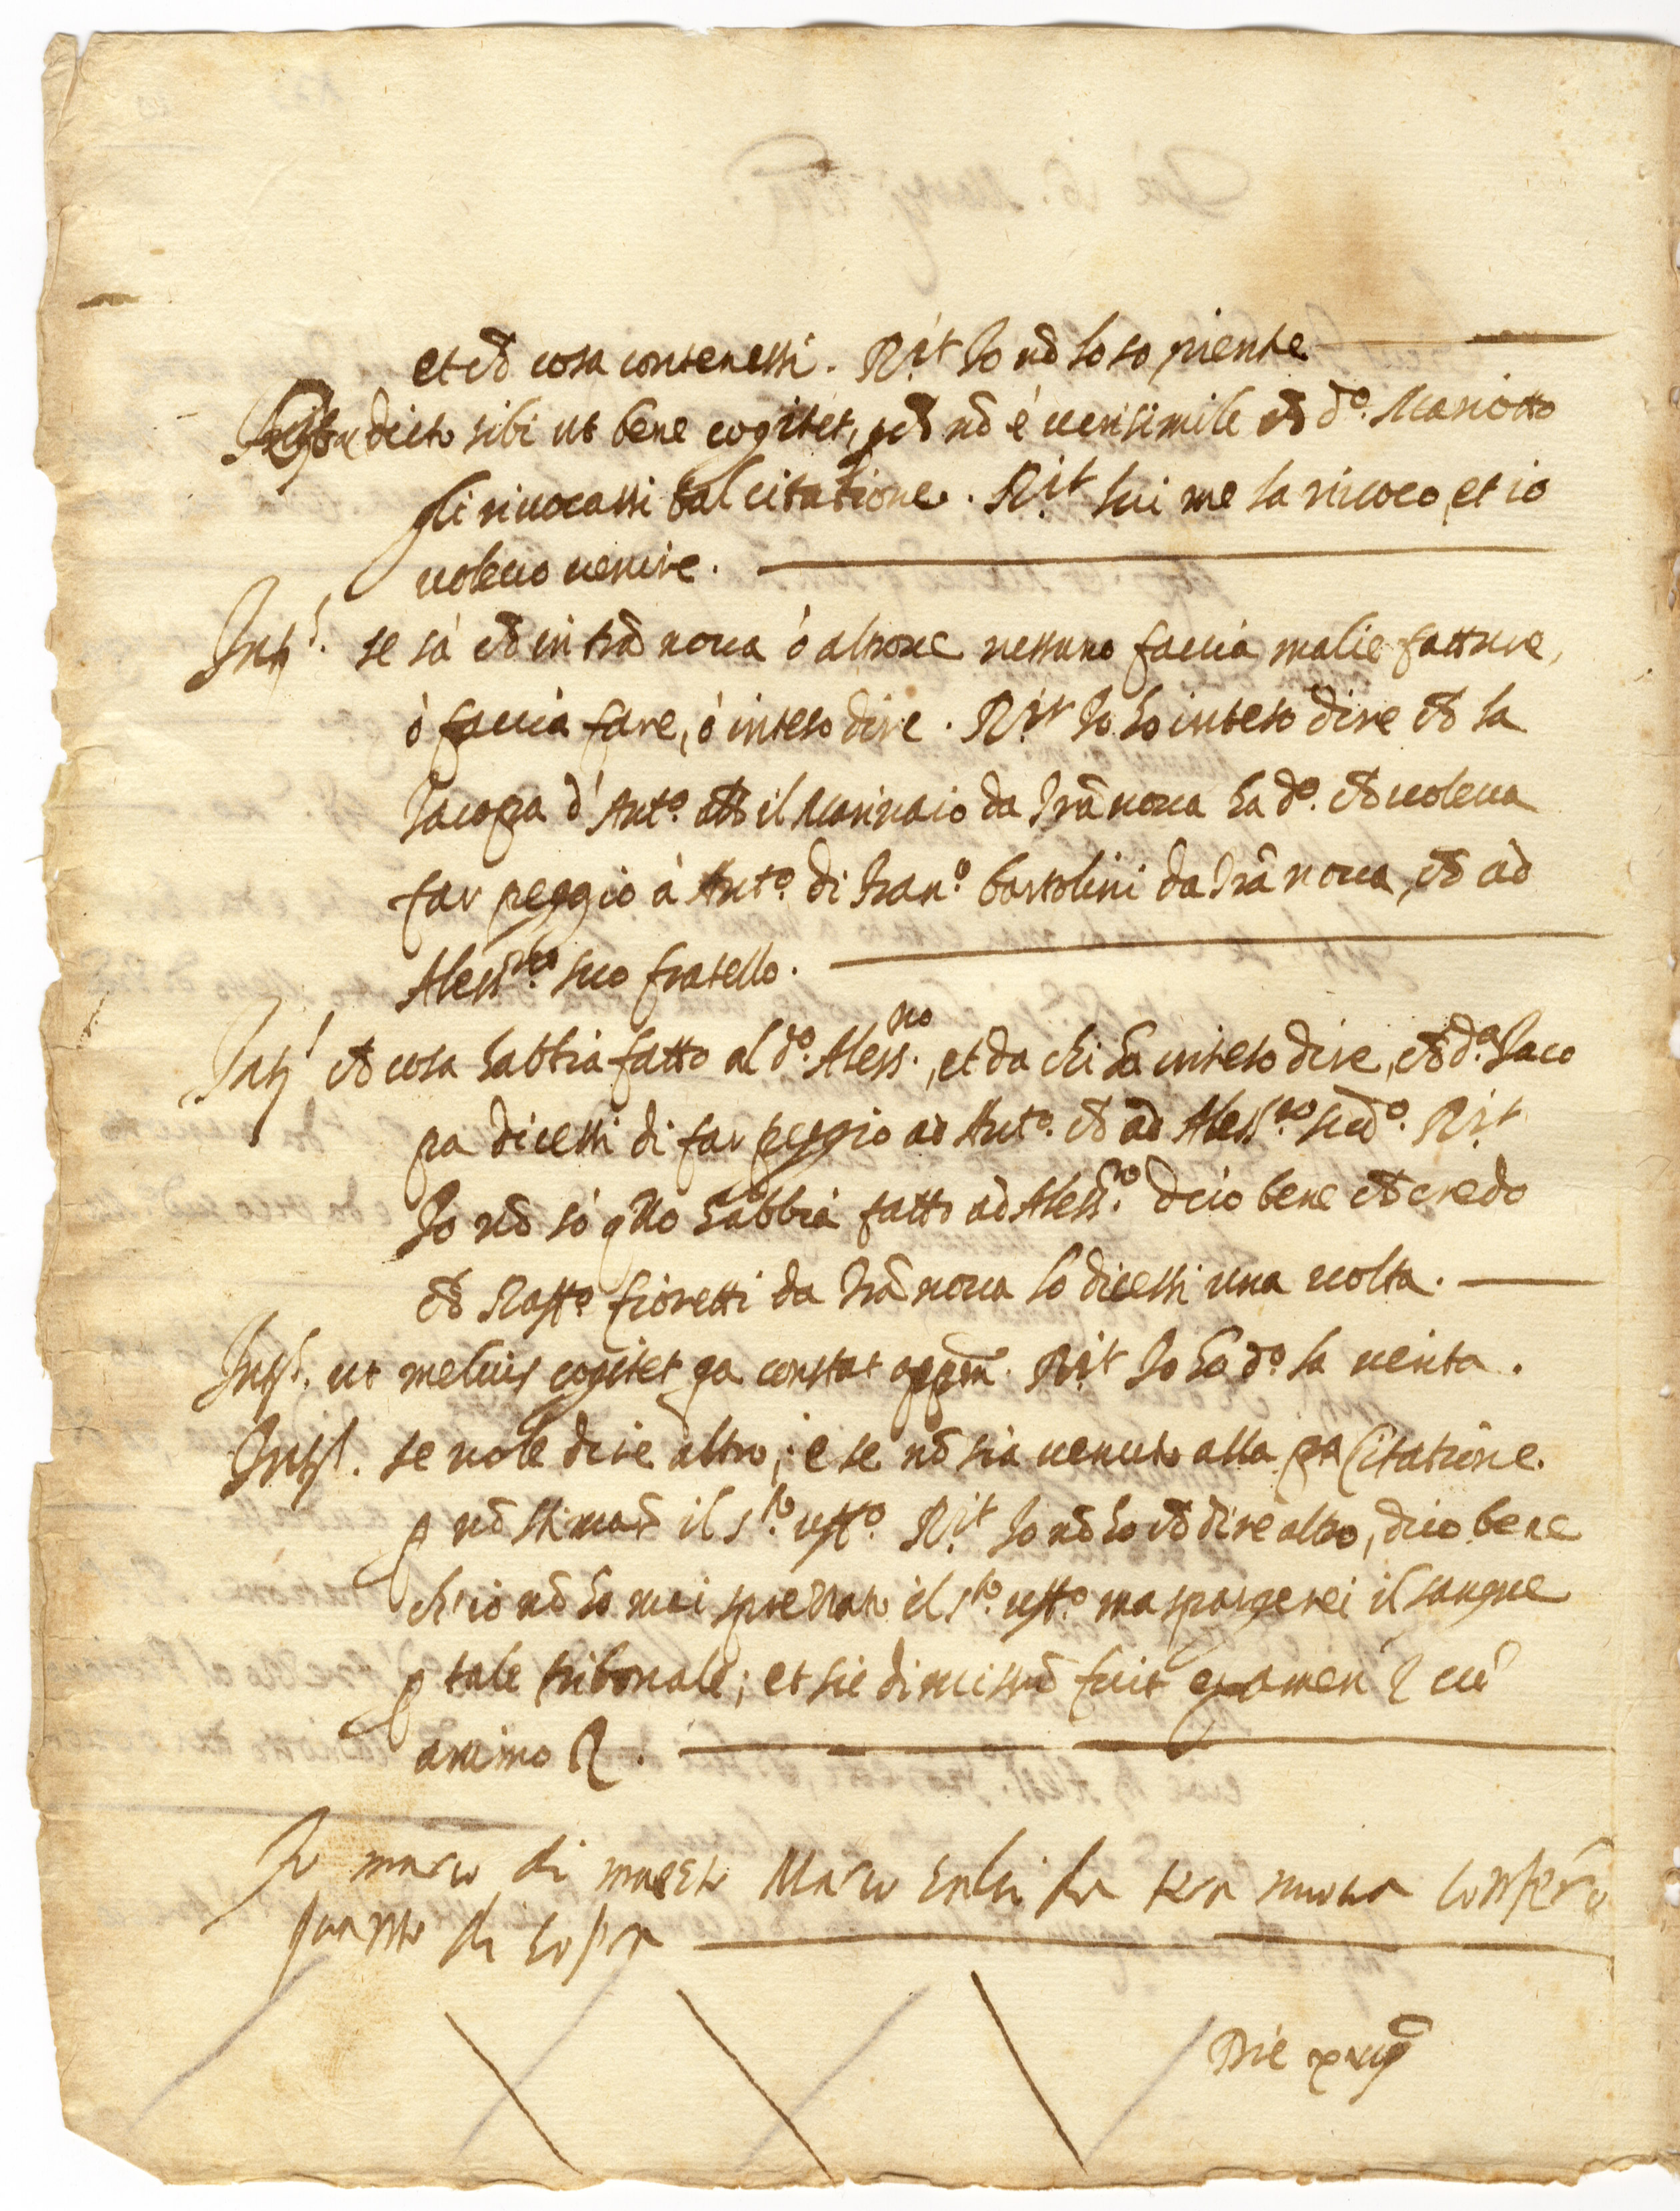 et ch̃ cosa contenessi. R.it Io nõ lo so niente
dicto sibi ut bene cogitet, p ch̃ nõ é uerisimile ch̃ d.o Mariotto
gli riuocassi tal citatione. R.it lui me la riuoco, et io
uoleuo uenire.
Int.s se sà ch̃ in Tr̃a noua ó altroue nessuno faccia malie fatture,
ó faccia fare, ó inteso dire. R.it Io ho inteso dire ch̃ la
Iacopa d' Ant.o il Marinaio da Tr̃a noua ha d.o ch̃ uoleua
far peggio à Ant.o di Fran.o bartolini da Tr̃a noua, ch̃ ad
Aless.ro suo fratello.
Int.s ch̃ cosa habbia fatto al d.o Aless.ro, et da chi ha inteso dire, ch̃ d.a Iaco
pa dicessi di far peggio ad Ant.o ch̃ ad Aless.ro sud.o R.it
Io nõ só qllo habbia fatto ad Aless.ro dico bene ch̃ credo
ch̃ Raff.o fioretti da Tr̃a noua lo dicessi una uolta.
Int.s ut melius cogitet qa constat oppm̃. R.it Io ho d.o la uerita.
Int.s se uole dire altro; e se nõ sia uenuto alla pa Citatione
p nõ stimar̃ il s.to uff.o R.it Io nõ ho ch̃ dire altro, dico bene
ch'io nõ ho mai sprezzato il s.to uff.o ma spargerei il sangue
p tale tribonale; et sic dimissũ fuit examen & cũ
animo &.
Io marco di maestro Marco da tera nuoua Confermo
quanto di sopra
Die